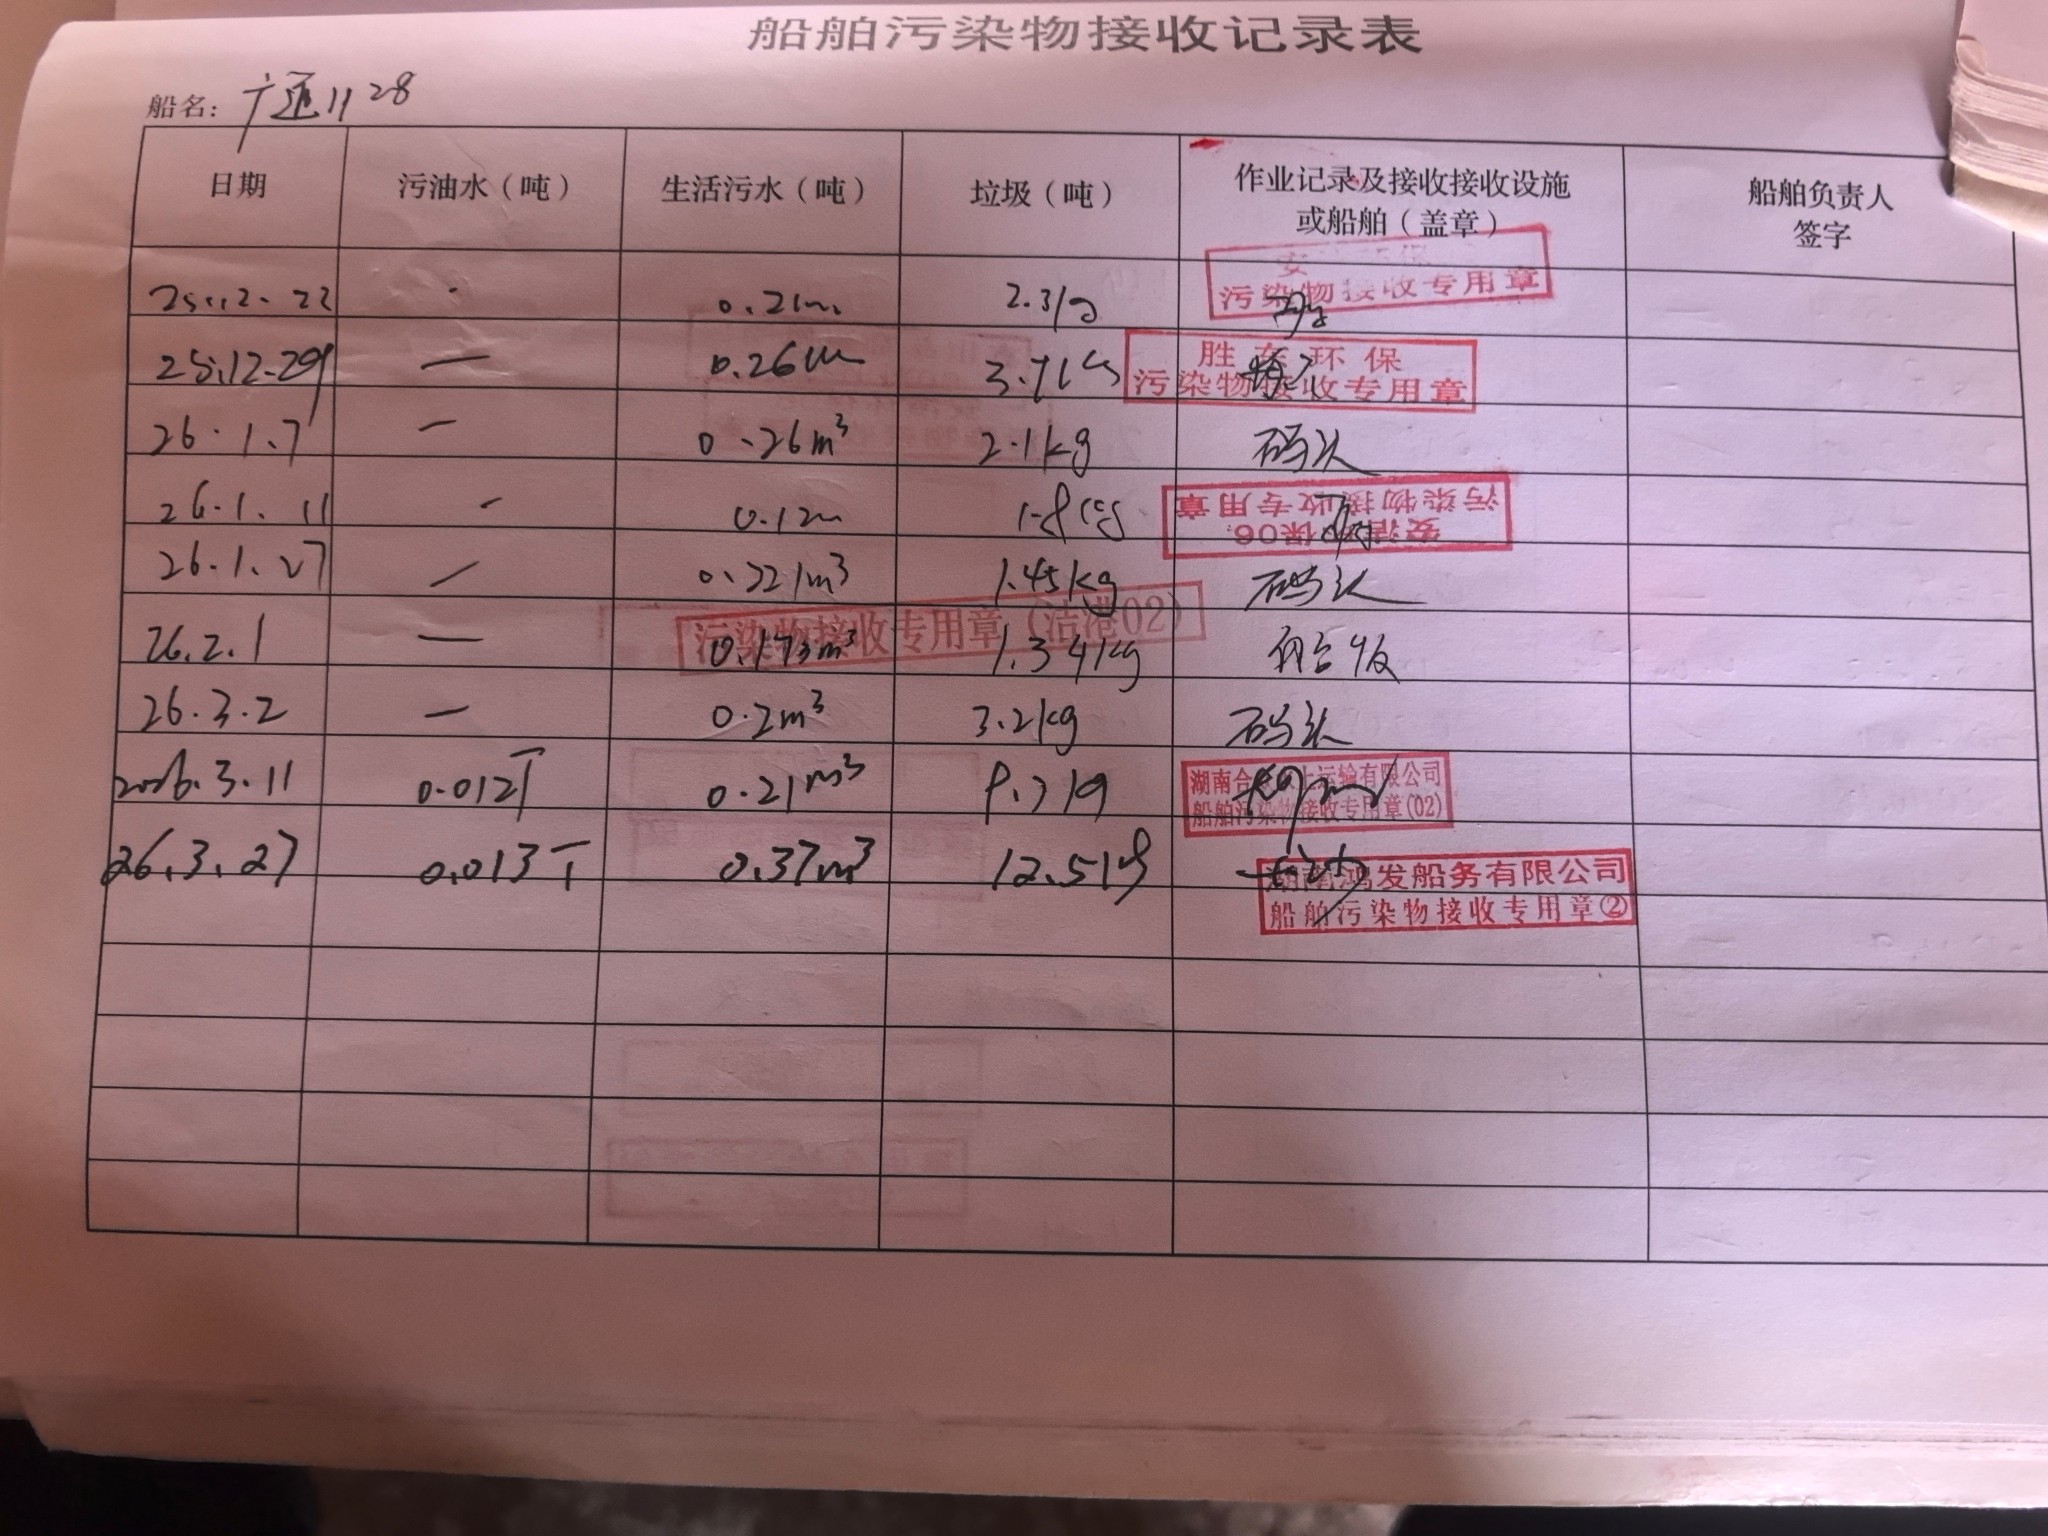 船舶污染物接收记录表
船名: 广通1128
日期 污油水（吨） 生活污水（吨） 垃圾（吨） 作业记录及接收接收设施
或船舶（盖章） 船舶负责人
签字
污染物接收专用章
25.12.22 0.21m
25.12.29 — 0.26m
胜东环保
污染物接收专用章
26.1.7 — 0.26m³ 2.1kg 码头
26.1.11 0.12m
污染物接收专用章
安洁环保06
26.1.27 — 0.221m³ 1.45kg 码头
污染物接收专用章（洁港02）
26.2.1 — 0.173m³ 1.34kg
26.3.2 — 0.2m³ 3.2kg 码头
2026.3.11 0.012T 0.21m³
湖南合 水上运输有限公司
船舶污染物接收专用章(02)
26.3.27 0.013T 0.37m³
湖南鸿发船务有限公司
船舶污染物接收专用章②